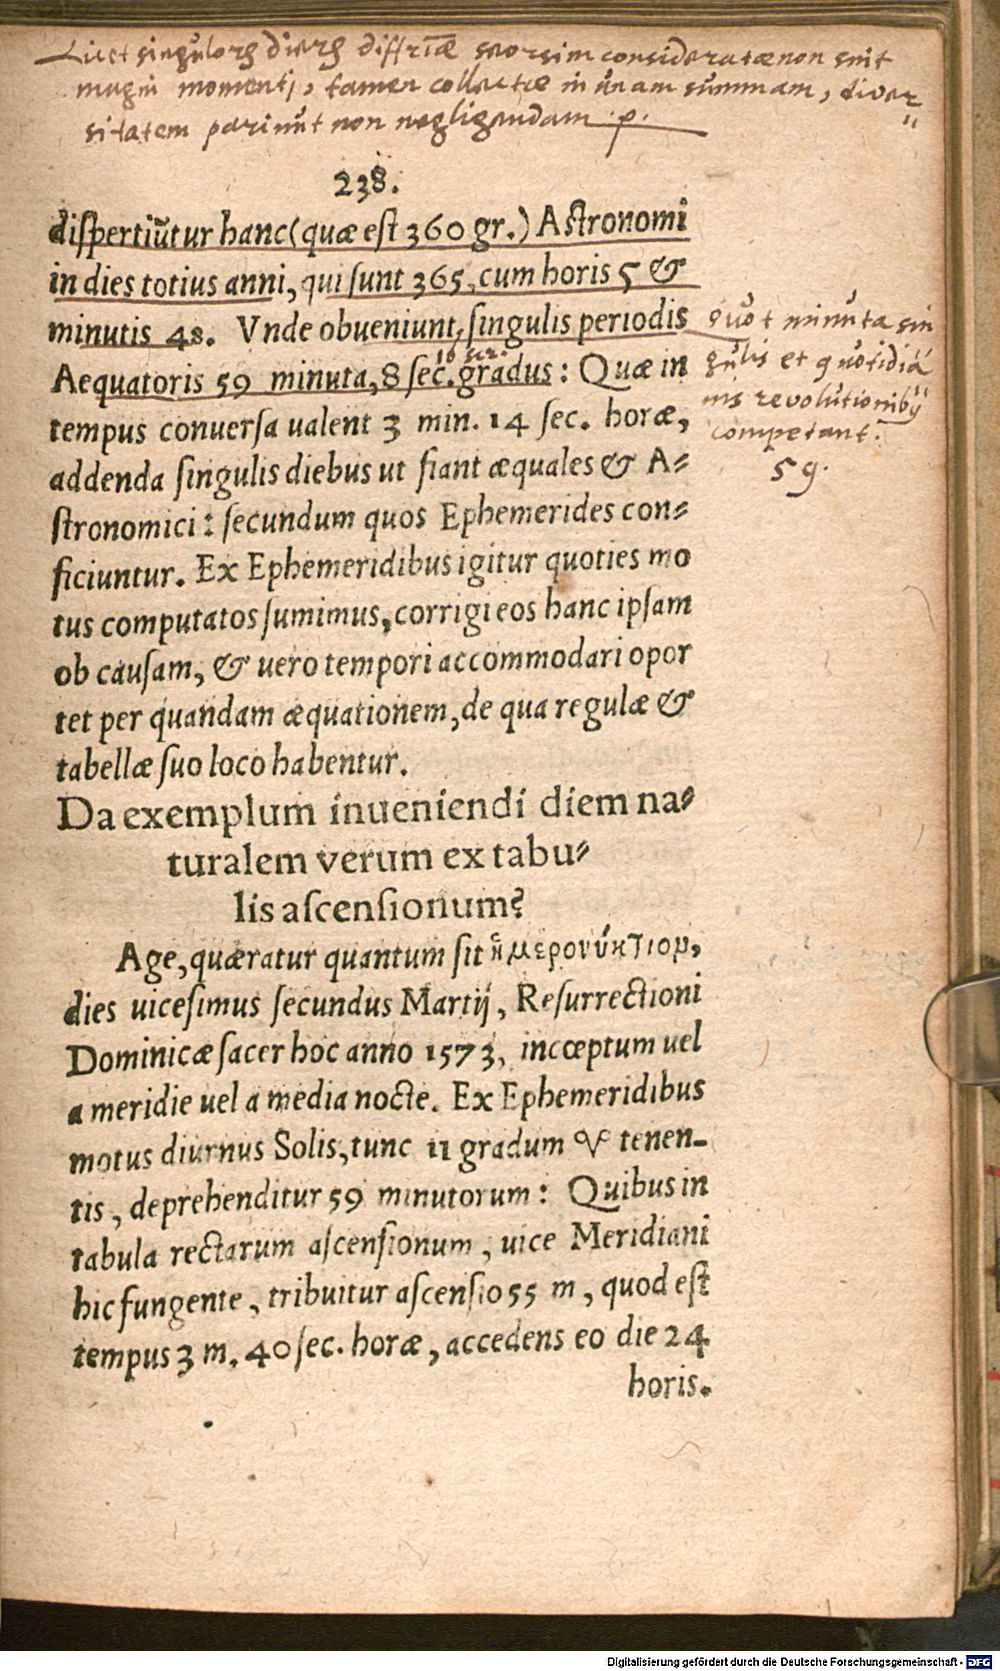 Licet singulorum dierum differentiæ seorsim consideratæ non sint
magni momenti, tamen collectæ in unam summam, diver
sitatem pariunt non negligendam. p.
238.
diſpertiūtur hanc (quæ eſt 360 gr.) Aſtronomi
in dies totius anni, qui ſunt 365, cum horis 5 &
minutis 48. Vnde obueniunt, ſingulis periodis
Quot minuta sin
gulis et quotidia
nis revolutionibus
competant.
59.
10 scr.
Aequatoris 59 minuta, 8 ſec. gradus: Quæ in
tempus conuerſa ualent 3 min. 14 ſec. horæ,
addenda ſingulis diebus ut fiant æquales & A⸗
ſtronomici: ſecundum quos Ephemerides con⸗
ficiuntur. Ex Ephemeridibus igitur quoties mo
tus computatos ſumimus, corrigi eos hanc ipſam
ob cauſam, & uero tempori accommodari opor
tet per quandam æquationem, de qua regulæ &
tabellæ ſuo loco habentur.
Da exemplum inueniendi diem na⸗
turalem verum ex tabu⸗
lis aſcenſionum?
Age, quæratur quantum ſit ἡμερονύκτιον,
dies uiceſimus ſecundus Martij, Reſurrectioni
Dominicæ ſacer hoc anno 1573, incœptum uel
a meridie uel a media nocte. Ex Ephemeridibus
motus diurnus Solis, tunc 11 gradum ♈ tenen-
tis, deprehenditur 59 minutorum: Quibus in
tabula rectarum aſcenſionum, uice Meridiani
hic fungente, tribuitur aſcenſio 55 m, quod eſt
tempus 3 m. 40 ſec. horæ, accedens eo die 24
horis.
Digitalisierung gefördert durch die Deutsche Forschungsgemeinschaft - DFG